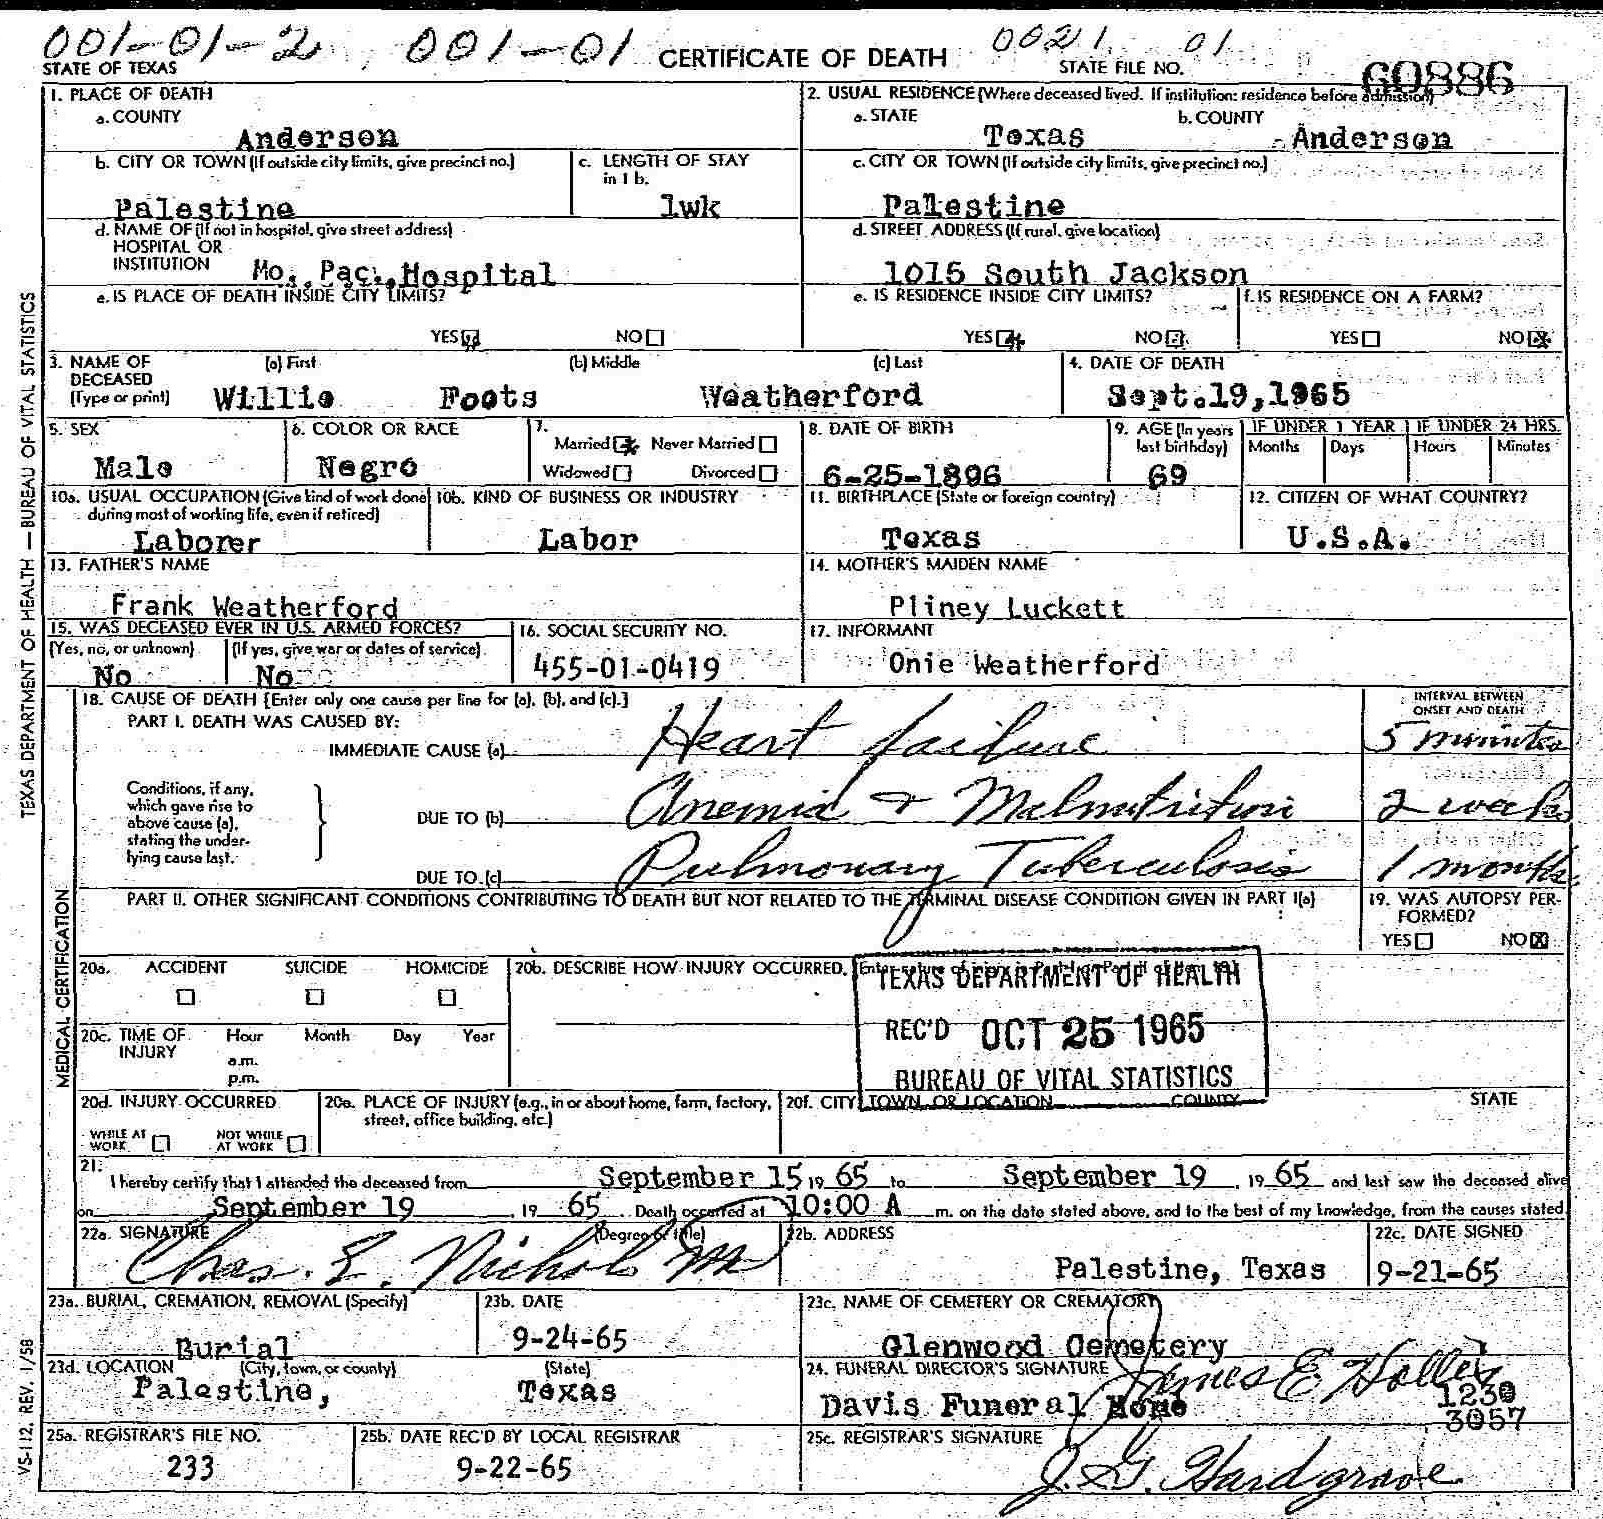 001-01-2 001-01 CERTIFICATE OF DEATH 0021 01
STATE OF TEXAS STATE FILE NO. 60886
1. PLACE OF DEATH
a. COUNTY
Anderson
2. USUAL RESIDENCE (Where deceased lived. If institution: residence before admission)
a. STATE b. COUNTY
Texas Anderson
b. CITY OR TOWN (If outside city limits, give precinct no.)
Palestine
c. LENGTH OF STAY
in 1 b.
1wk
c. CITY OR TOWN (If outside city limits, give precinct no.)
Palestine
d. NAME OF (If not in hospital, give street address)
HOSPITAL OR
INSTITUTION Mo. Pac. Hospital
d. STREET ADDRESS (If rural, give location)
1015 South Jackson
e. IS PLACE OF DEATH INSIDE CITY LIMITS?
YES NO
e. IS RESIDENCE INSIDE CITY LIMITS?
YES NO
f. IS RESIDENCE ON A FARM?
YES NO
3. NAME OF DECEASED (Type or print)
(a) First (b) Middle (c) Last
Willie Foots Weatherford
4. DATE OF DEATH
Sept.19,1965
5. SEX
Male
6. COLOR OR RACE
Negro
7.
Married Never Married
Widowed Divorced
8. DATE OF BIRTH
6-25-1896
9. AGE (In years
last birthday)
69
IF UNDER 1 YEAR IF UNDER 24 HRS.
Months Days Hours Minutes
10a. USUAL OCCUPATION (Give kind of work done
during most of working life, even if retired)
Laborer
10b. KIND OF BUSINESS OR INDUSTRY
Labor
11. BIRTHPLACE (State or foreign country)
Texas
12. CITIZEN OF WHAT COUNTRY?
U.S.A.
13. FATHER'S NAME
Frank Weatherford
14. MOTHER'S MAIDEN NAME
Pliney Luckett
15. WAS DECEASED EVER IN U.S. ARMED FORCES?
(Yes, no, or unknown) (If yes, give war or dates of service)
No No
16. SOCIAL SECURITY NO.
455-01-0419
17. INFORMANT
Onie Weatherford
18. CAUSE OF DEATH [Enter only one cause per line for (a), (b), and (c).]
PART I. DEATH WAS CAUSED BY:
INTERVAL BETWEEN
ONSET AND DEATH
IMMEDIATE CAUSE (a) Heart failure 5 minutes
Conditions, if any,
which gave rise to
above cause (a),
stating the under-
lying cause last.
DUE TO (b) Anemia & Malnutrition 2 weeks
DUE TO (c) Pulmonary Tuberculosis 1 months
PART II. OTHER SIGNIFICANT CONDITIONS CONTRIBUTING TO DEATH BUT NOT RELATED TO THE TERMINAL DISEASE CONDITION GIVEN IN PART I(a)
19. WAS AUTOPSY PER-
FORMED?
YES NO
20a. ACCIDENT SUICIDE HOMICIDE
20b. DESCRIBE HOW INJURY OCCURRED.
TEXAS DEPARTMENT OF HEALTH
REC'D OCT 25 1965
BUREAU OF VITAL STATISTICS
20c. TIME OF
INJURY
Hour Month Day Year
a.m.
p.m.
20d. INJURY OCCURRED
WHILE AT
WORK
NOT WHILE
AT WORK
20e. PLACE OF INJURY (e.g., in or about home, farm, factory,
street, office building, etc.)
20f. CITY, TOWN, OR LOCATION COUNTY STATE
21.
I hereby certify that I attended the deceased from September 15, 19 65 to September 19, 19 65 and last saw the deceased alive
on September 19, 19 65. Death occurred at 10:00 A m. on the date stated above, and to the best of my knowledge, from the causes stated.
22a. SIGNATURE (Degree or title)
Chas. E. Nichols M
22b. ADDRESS
Palestine, Texas
22c. DATE SIGNED
9-21-65
23a. BURIAL, CREMATION, REMOVAL (Specify)
Burial
23b. DATE
9-24-65
23c. NAME OF CEMETERY OR CREMATORY
Glenwood Cemetery
23d. LOCATION (City, town, or county) (State)
Palestine, Texas
24. FUNERAL DIRECTOR'S SIGNATURE
James E. Holley
Davis Funeral Home
1230
3057
25a. REGISTRAR'S FILE NO.
233
25b. DATE REC'D BY LOCAL REGISTRAR
9-22-65
25c. REGISTRAR'S SIGNATURE
J. G. Hardgrave
TEXAS DEPARTMENT OF HEALTH — BUREAU OF VITAL STATISTICS
MEDICAL CERTIFICATION
VS-112, REV. 1/58